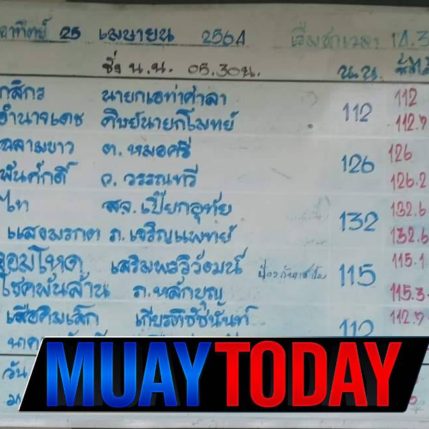 อาทิตย์ 25 เมษายน 2564 เริ่มชกเวลา 14.3
ชั่ง น.น. 05.30น. น.น.
กสิกร นายกเอท่าศาลา 112 112
อำนาจเดช ศิษย์นายกโมทย์ 112.7
ฉลามขาว ต. หมอศรี 126 126
พันศักดิ์ ว. วรรณทวี 126.2
ไท สจ.เปี๊ยกอุทัย 132 132.6
แสงมรกต ภ.เจริญแพทย์ 132.6
จอมโหด เสริมพรวิวัฒน์ 115 115.1
โชคพันล้าน ภ.หลักบุญ 115.3
เสือคิมเล็ก เกียรติชัชนันท์ 112 112.7
วัน
MUAY TODAY